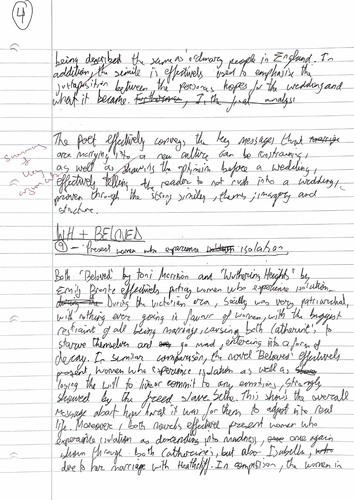 4
being described the same as ordinary people in England. In
addition, the simile is effectively used to emphasise the
juxtaposition between the persona's hopes for the wedding and
what it became. In the final analysis
The poet effectively conveys the key messages that
marrying into a new culture can be constraining,
as well as showing the optimism before a wedding,
effectively telling the reader to not rush into a wedding,
proven through the strong similes, themes, imagery and
structure.
Summary of key
WH + BELOVED
Present women who experience isolation
Both 'Beloved' by Toni Morrison and 'Wuthering Heights' by
Emily Bronte effectively portray women who experience isolation.
During the Victorian era, society was very patriarchal,
with nothing ever going in favour of women, with the biggest
restraint of all being marriage, causing both Catherine's to
starve themselves and go mad, entering into a form of
decay. In similar comparison, the novel 'Beloved' effectively
present women who experience isolation as well as
losing the will to live or commit to any emotions, strongly
showed by the freed slave Sethe. This shows the overall
message about how hard it was for them to adjust into real
life. Moreover, both novels effectively present women who
experience isolation as descending into madness, once again
shown through both Catherines, but also Isabella,
due to her marriage with Heathcliff. In comparison, the women in